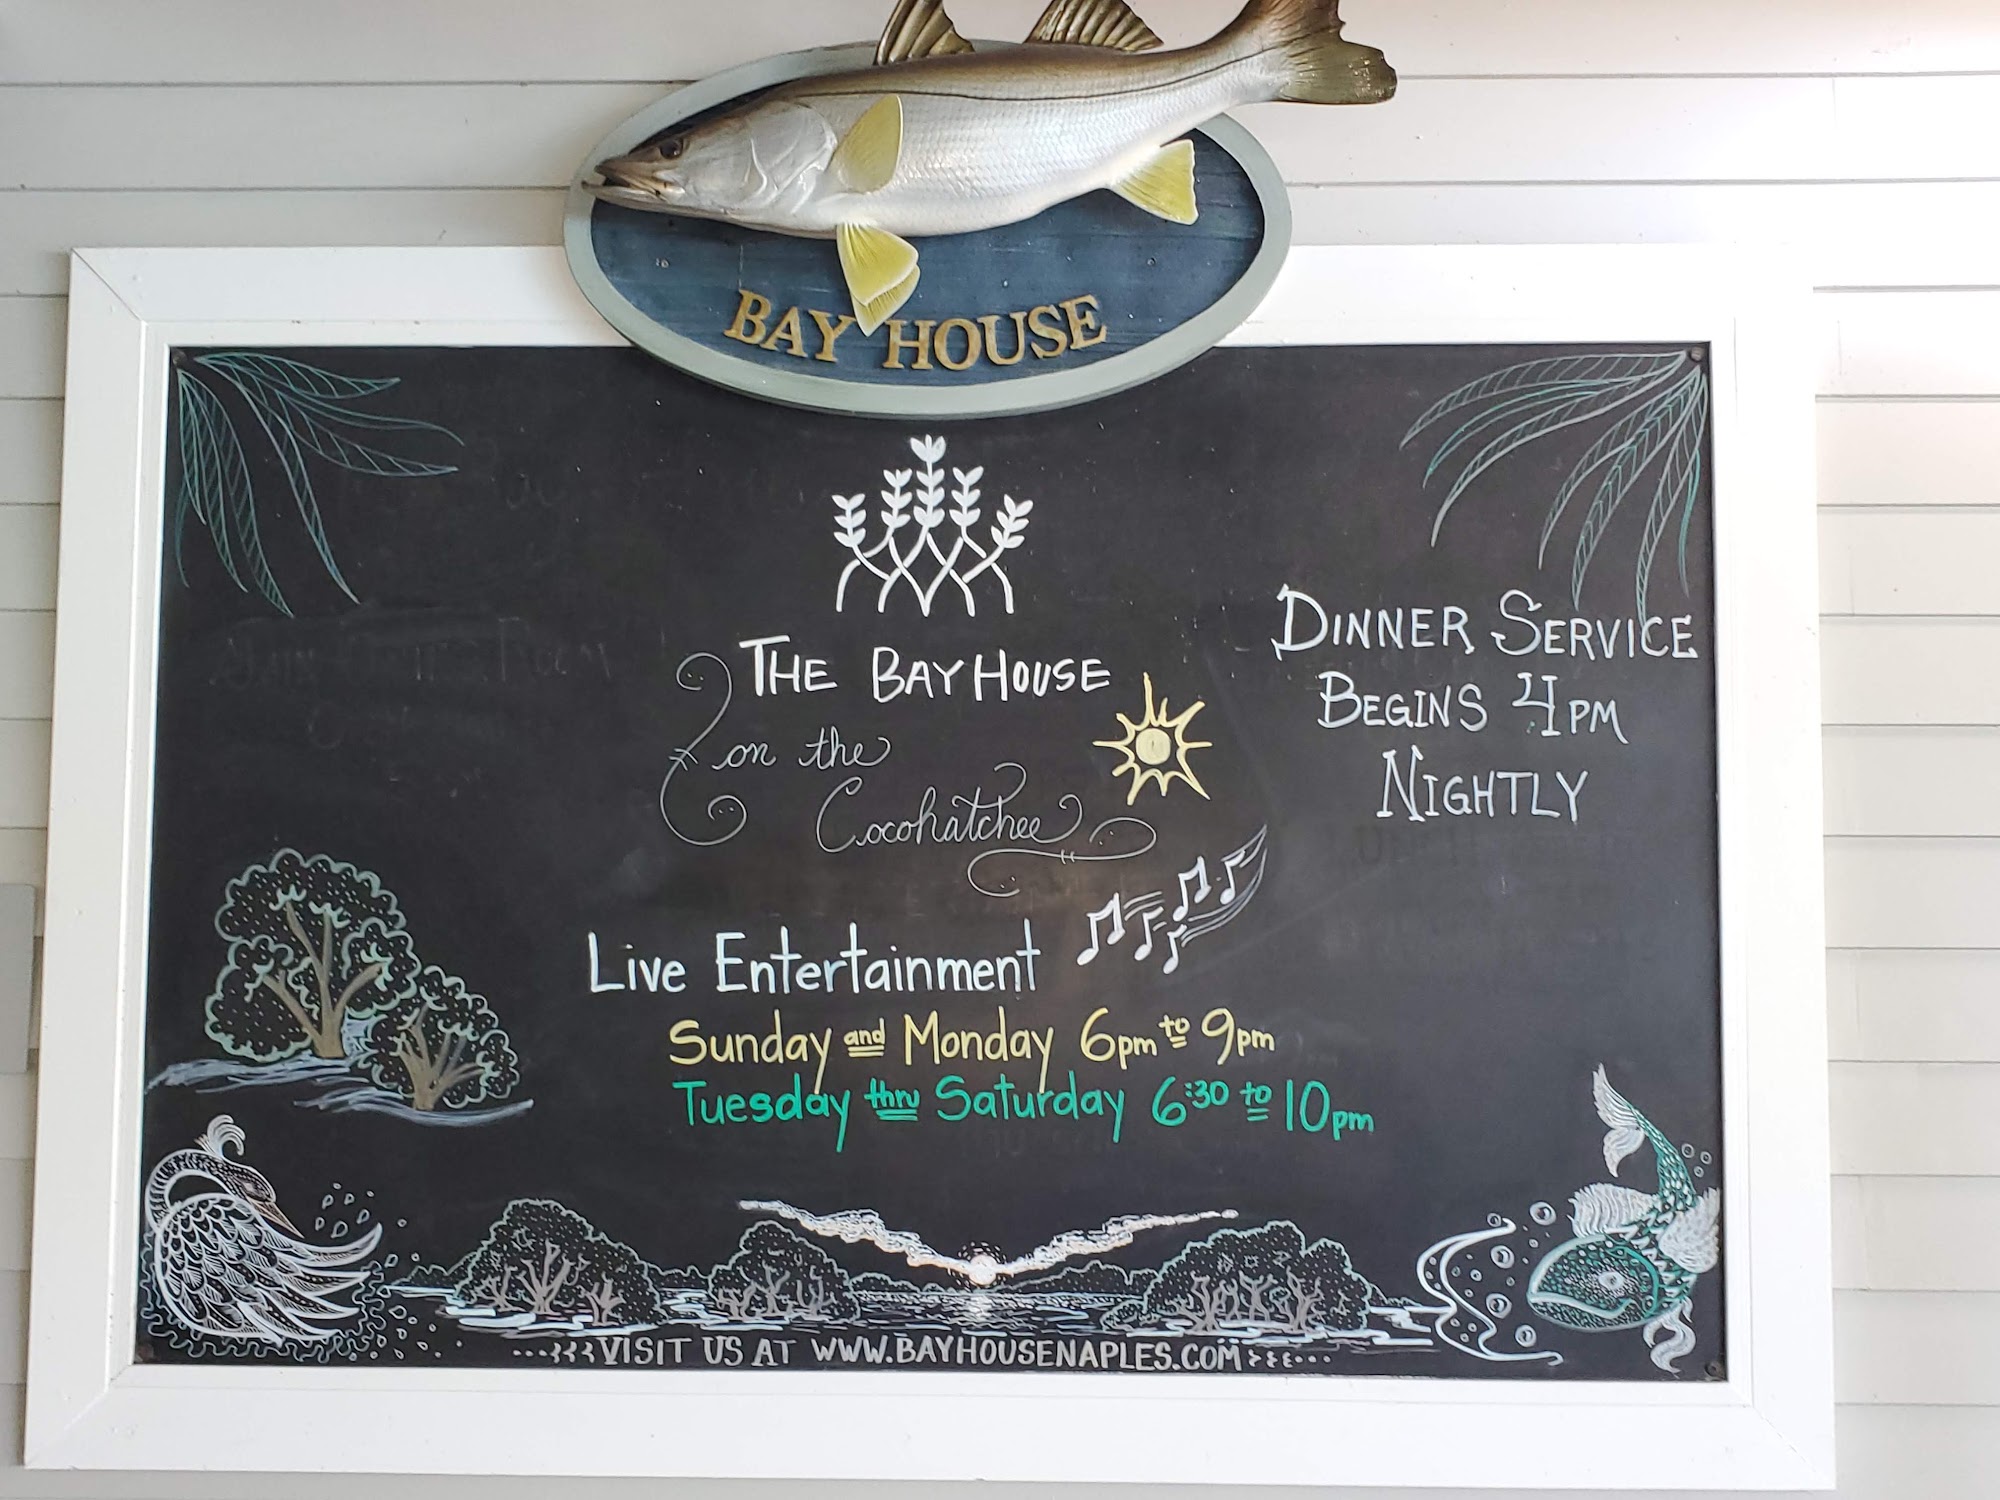 BAY HOUSE
THE BAY HOUSE
on the
Cocohatchee
DINNER SERVICE
BEGINS 4PM
NIGHTLY
Live Entertainment
Sunday and Monday 6pm to 9pm
Tuesday thru Saturday 6:30 to 10pm
VISIT US AT WWW.BAYHOUSENAPLES.COM